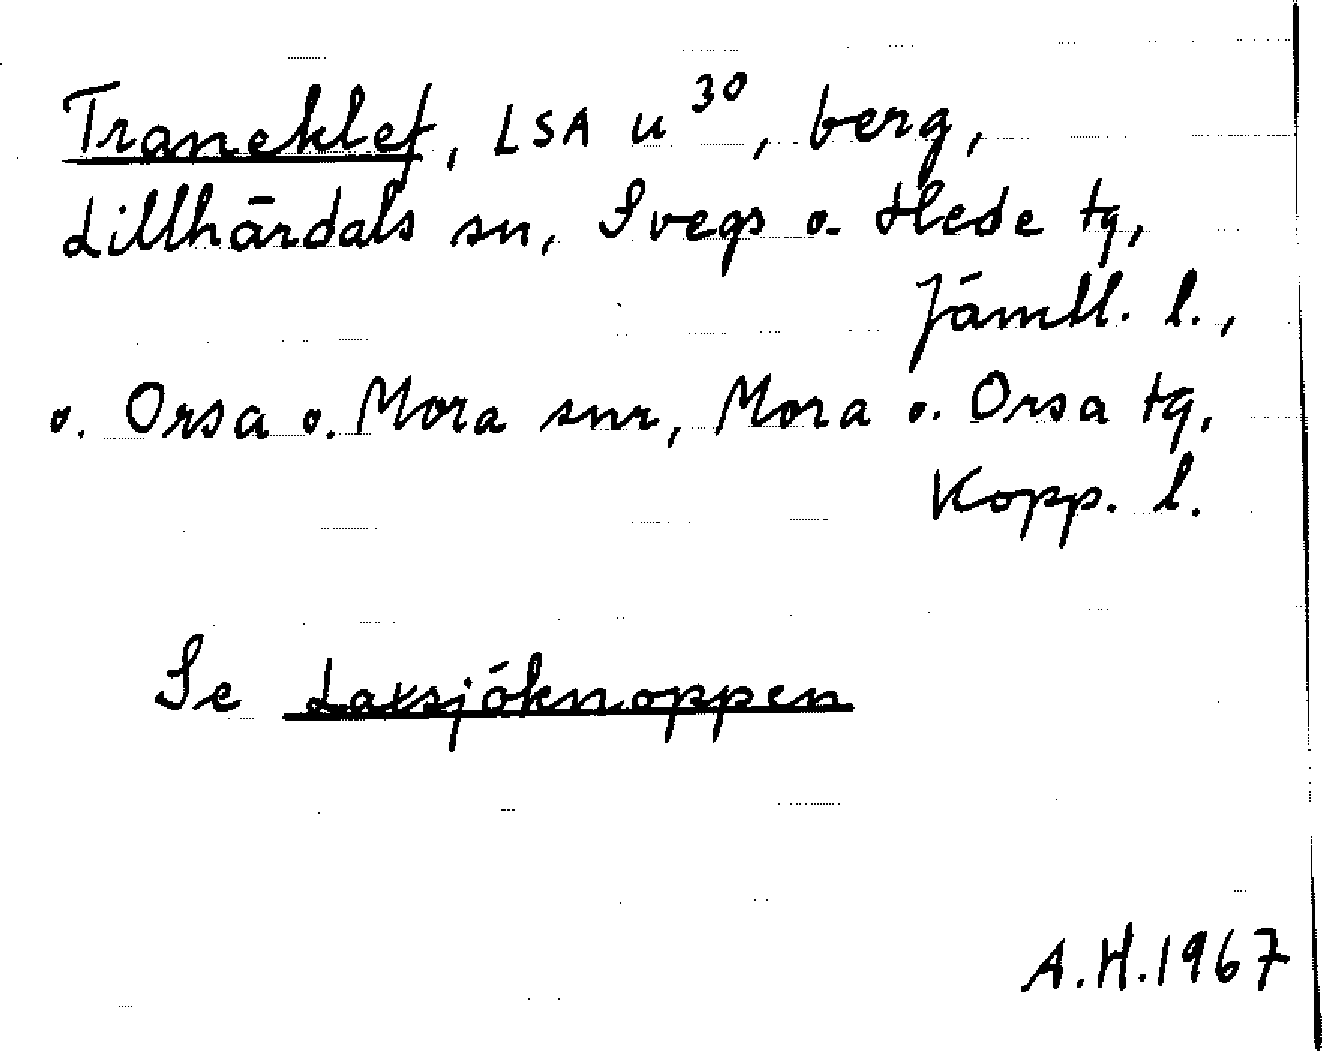 Traneklef, LSA u 30, berg,
Lillhärdals sn, Svegs o. Hede tg,
Jämtl. l.,
o. Orsa o. Mora snr, Mora o. Orsa tg,
Kopp. l.
Se Laxsjöknoppen
A.H. 1967